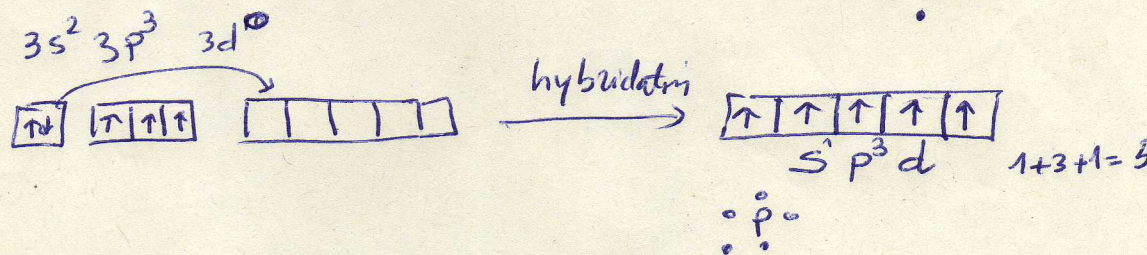 3s² 3p³ 3d⁰
↑↓ ↑ ↑ ↑ hybridatni ↑ ↑ ↑ ↑ ↑
s¹ p³ d 1+3+1=5
P